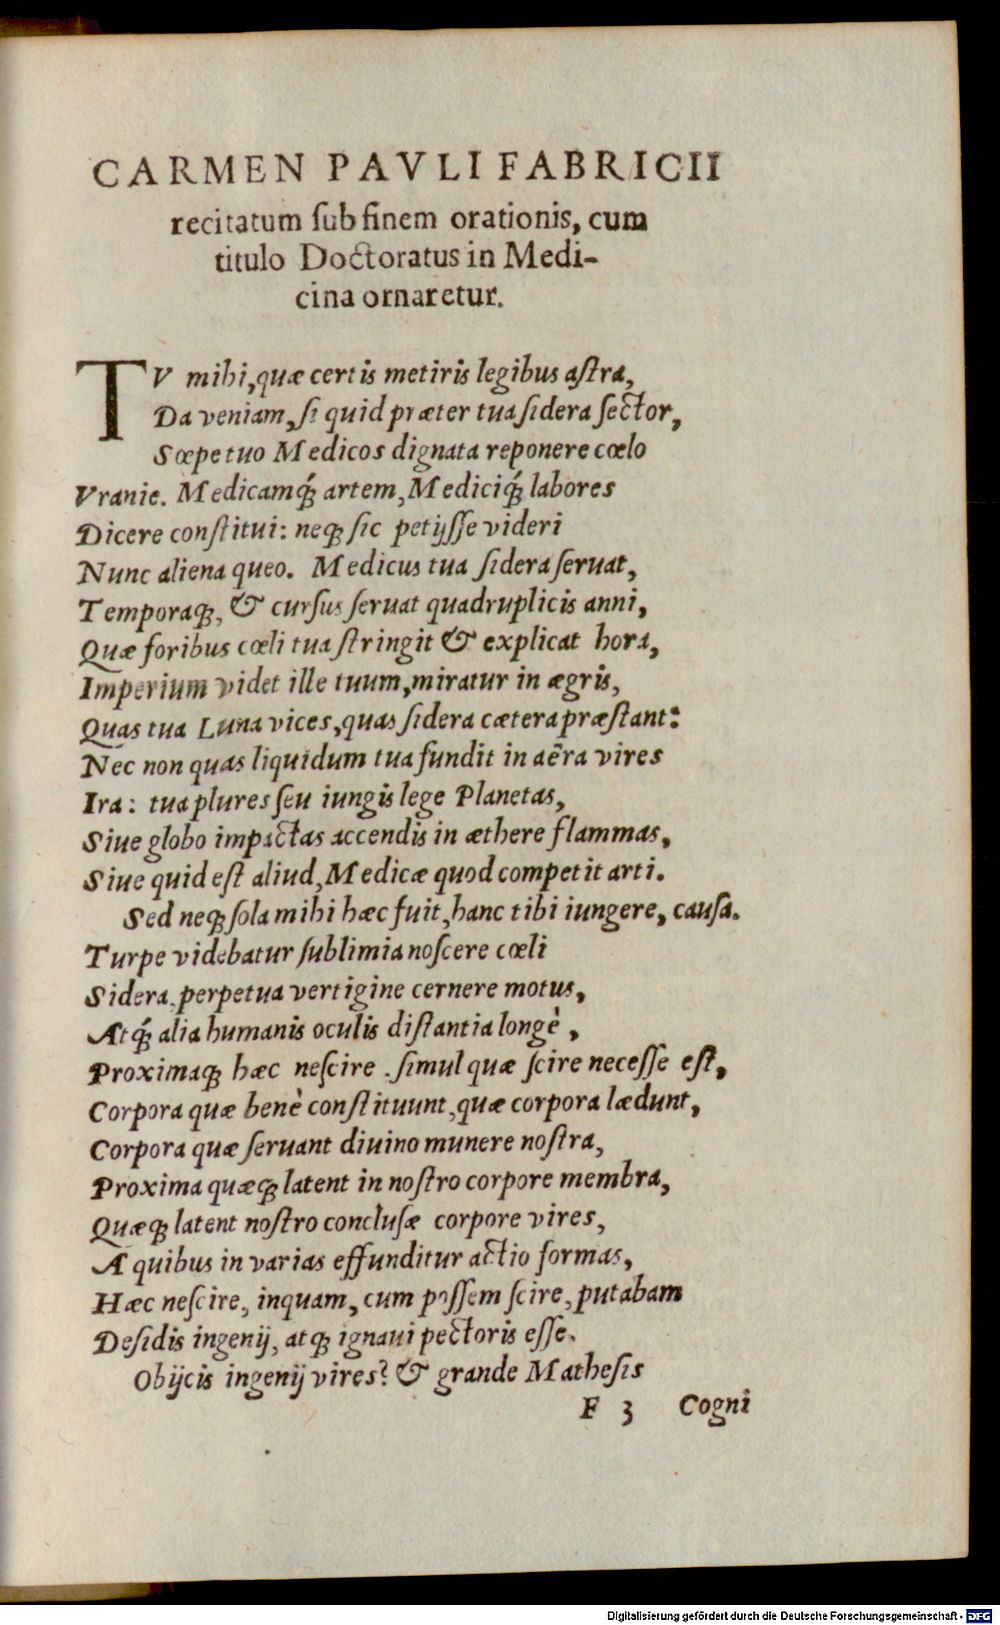 CARMEN PAVLI FABRICII
recitatum ſub finem orationis, cum
titulo Doctoratus in Medi-
cina ornaretur.
TV mihi, quæ certis metiris legibus aſtra,
Da veniam, ſi quid præter tua ſidera ſector,
Sæpe tuo Medicos dignata reponere cœlo
Vranie. Medicamq́ꝫ artem, Mediciq́ꝫ labores
Dicere conſtitui: neqꝫ ſic petijſſe videri
Nunc aliena queo. Medicus tua ſidera ſeruat,
Temporaqꝫ, & curſus ſeruat quadruplicis anni,
Quæ foribus cœli tua ſtringit & explicat hora,
Imperium videt ille tuum, miratur in ægris,
Quas tua Luna vices, quas ſidera cætera præſtant:
Nec non quas liquidum tua fundit in aëra vires
Ira: tua plures ſeu iungis lege Planetas,
Siue globo impactas accendis in æthere flammas,
Siue quid eſt aliud, Medicæ quod competit arti.
Sed neqꝫ ſola mihi hæc fuit, hanc tibi iungere, cauſa.
Turpe videbatur ſublimia noſcere cœli
Sidera, perpetua vertigine cernere motus,
Atq́ꝫ alia humanis oculis diſtantia longè,
Proximaqꝫ hæc neſcire, ſimul quæ ſcire neceſſe eſt,
Corpora quæ benè conſtituunt, quæ corpora lædunt,
Corpora quæ ſeruant diuino munere noſtra,
Proxima quæqꝫ latent in noſtro corpore membra,
Quæqꝫ latent noſtro concluſæ corpore vires,
A quibus in varias effunditur actio formas,
Hæc neſcire, inquam, cum poſſem ſcire, putabam
Deſidis ingenij, atqꝫ ignaui pectoris eſſe.
Obijcis ingenij vires? & grande Matheſis
F 3 Cogni
Digitalisierung gefördert durch die Deutsche Forschungsgemeinschaft - DFG